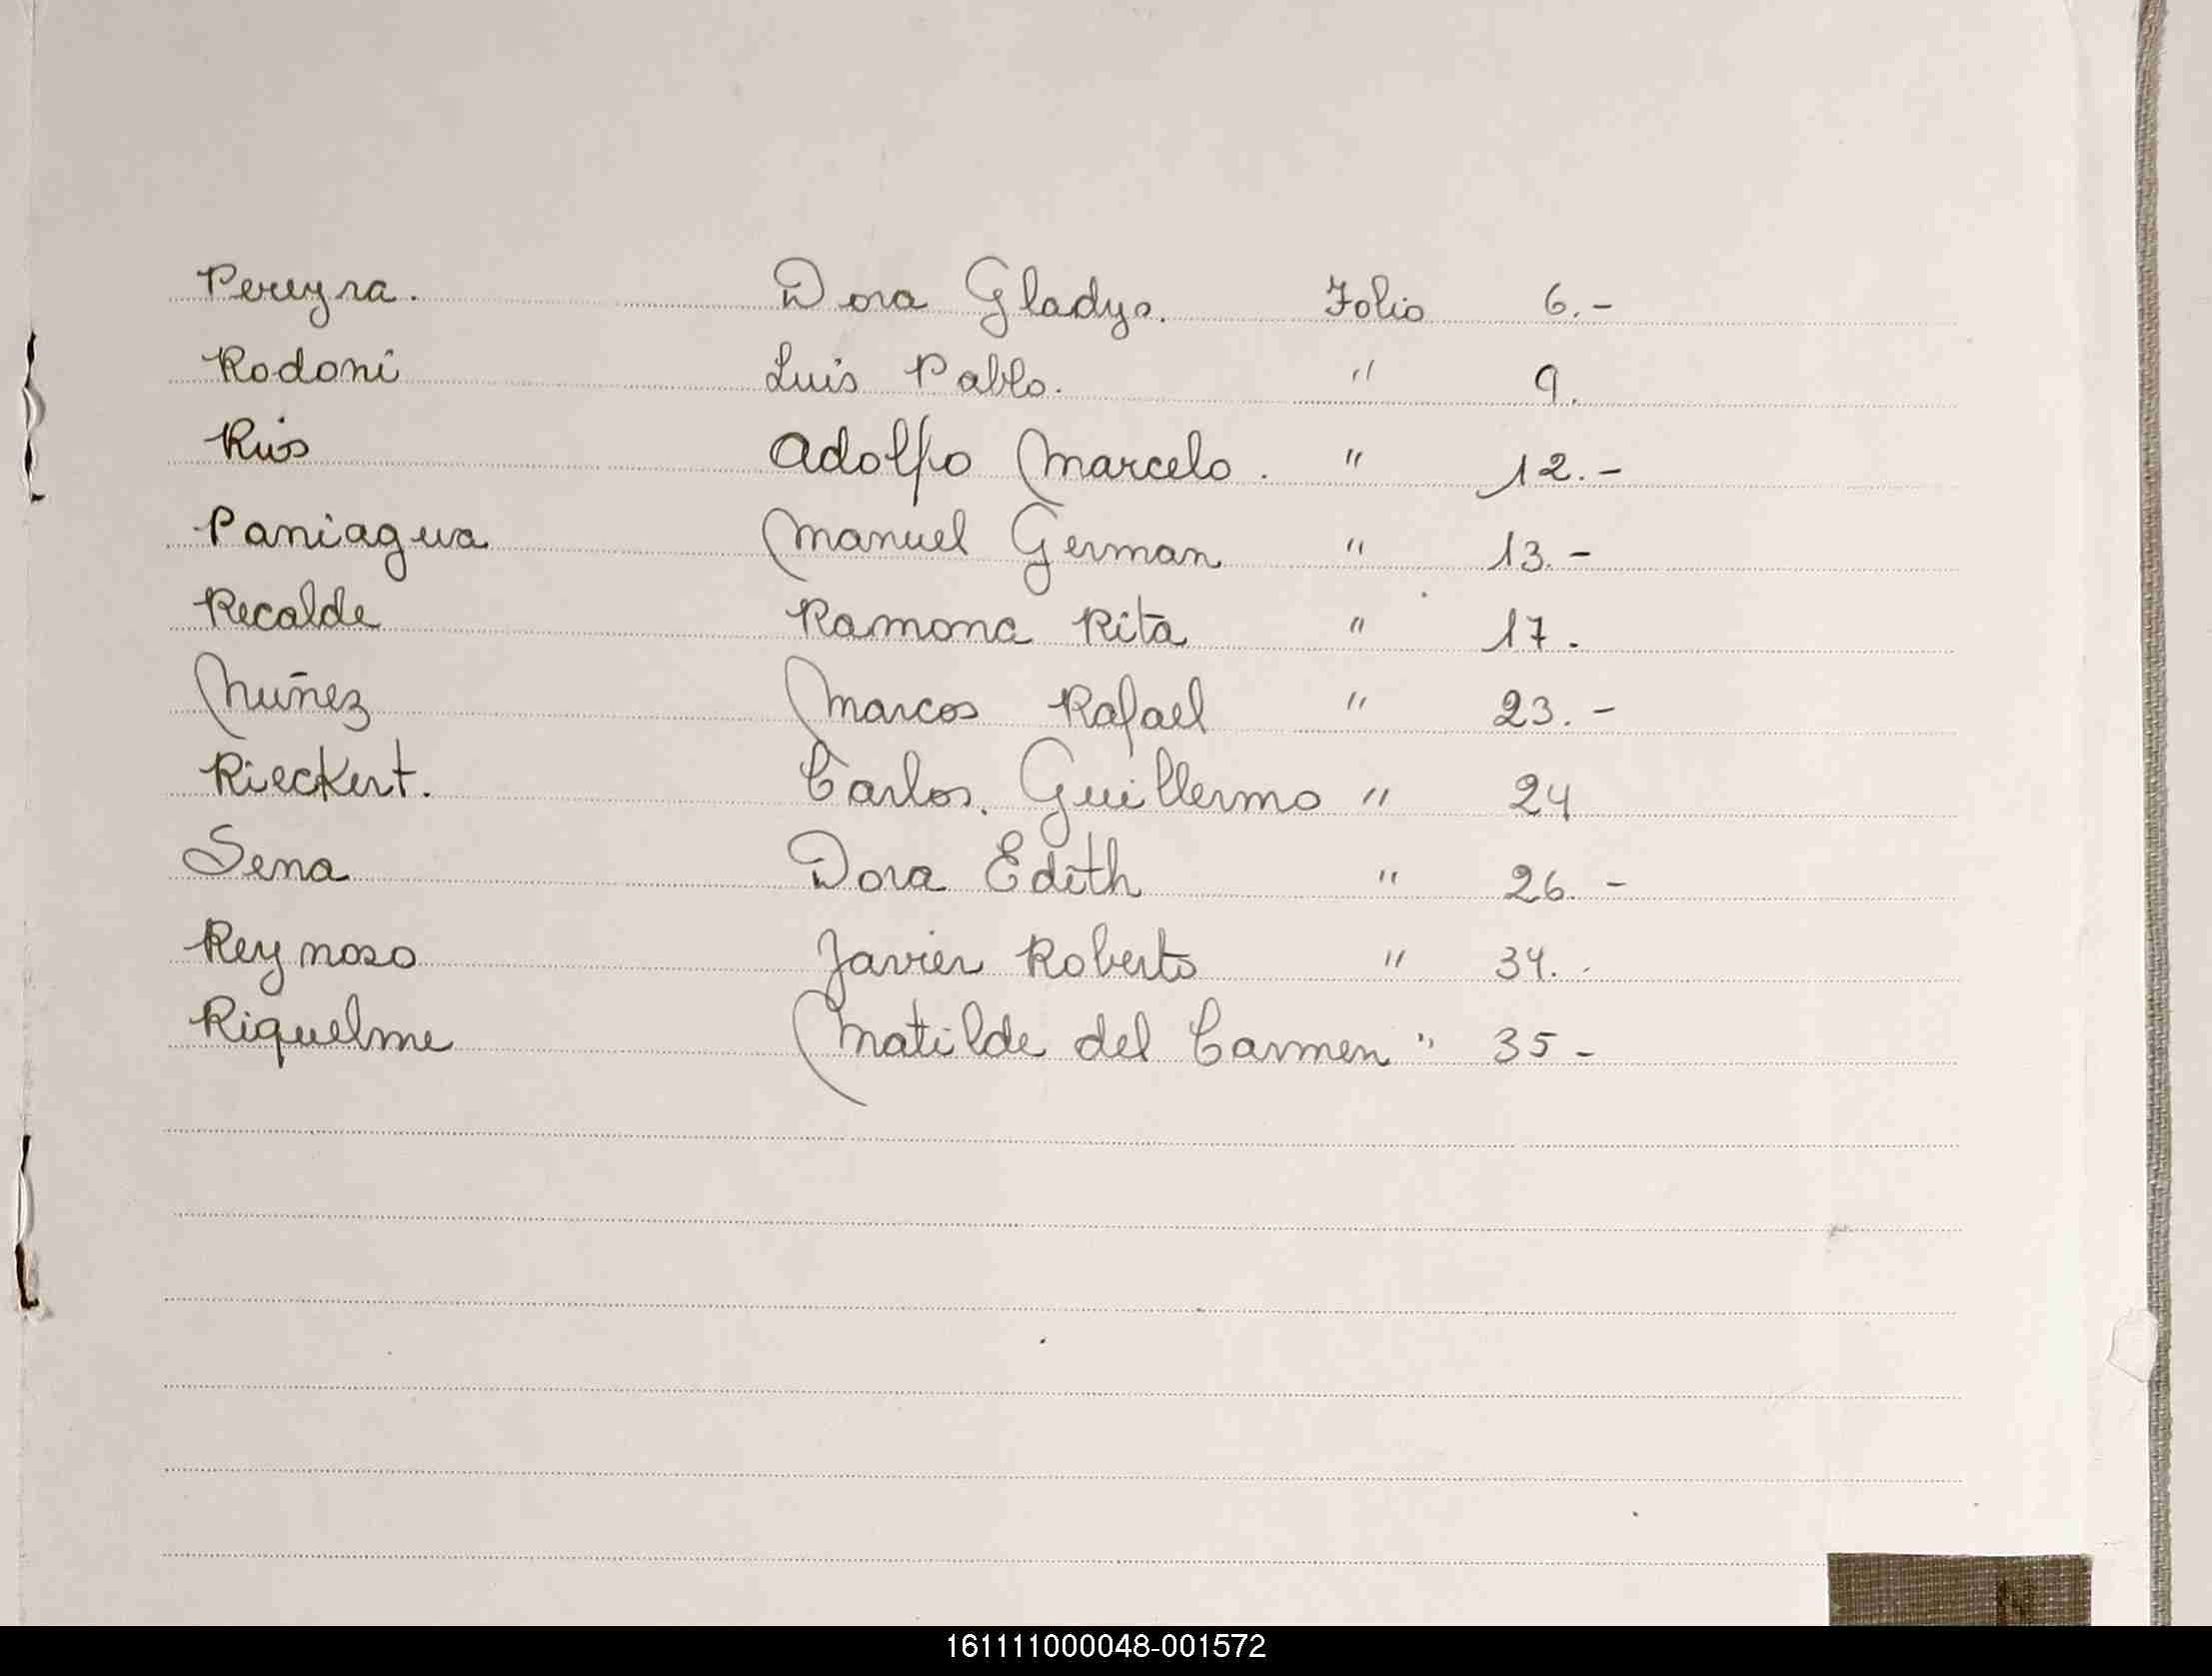 Pereyra. Dora Gladys. Folio 6.-
Rodoni Luis Pablo. " 9.
Rios Adolfo Marcelo. " 12.-
Paniagua Manuel German " 13.-
Recalde Ramona Rita " 17.
Nuñez Marcos Rafael " 23.-
Rieckert. Carlos. Guillermo " 24
Sena Dora Edith " 26.-
Reynoso Javier Roberto " 34.-
Riquelme Matilde del Carmen " 35-
161111000048-001572